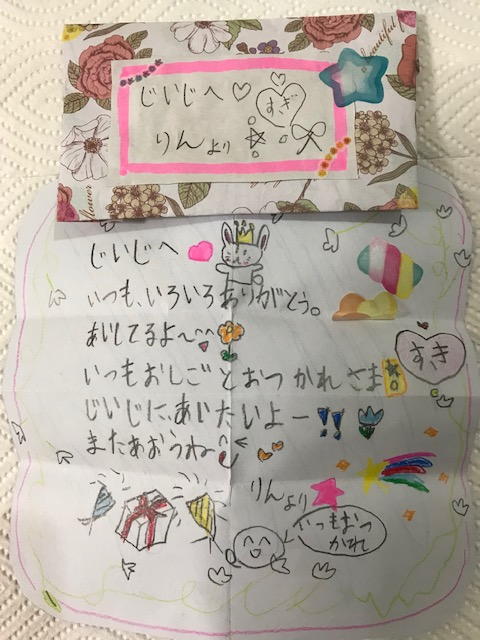 beautiful
flower
じいじへ♡
すき
りんより
じいじへ
いつも、いろいろありがとう。
あいしてるよ〜^^
いつもおしごとおつかれさま
すき
じいじに、あいたいよー!!
またあおうね
りんより
いつもおつ
かれ